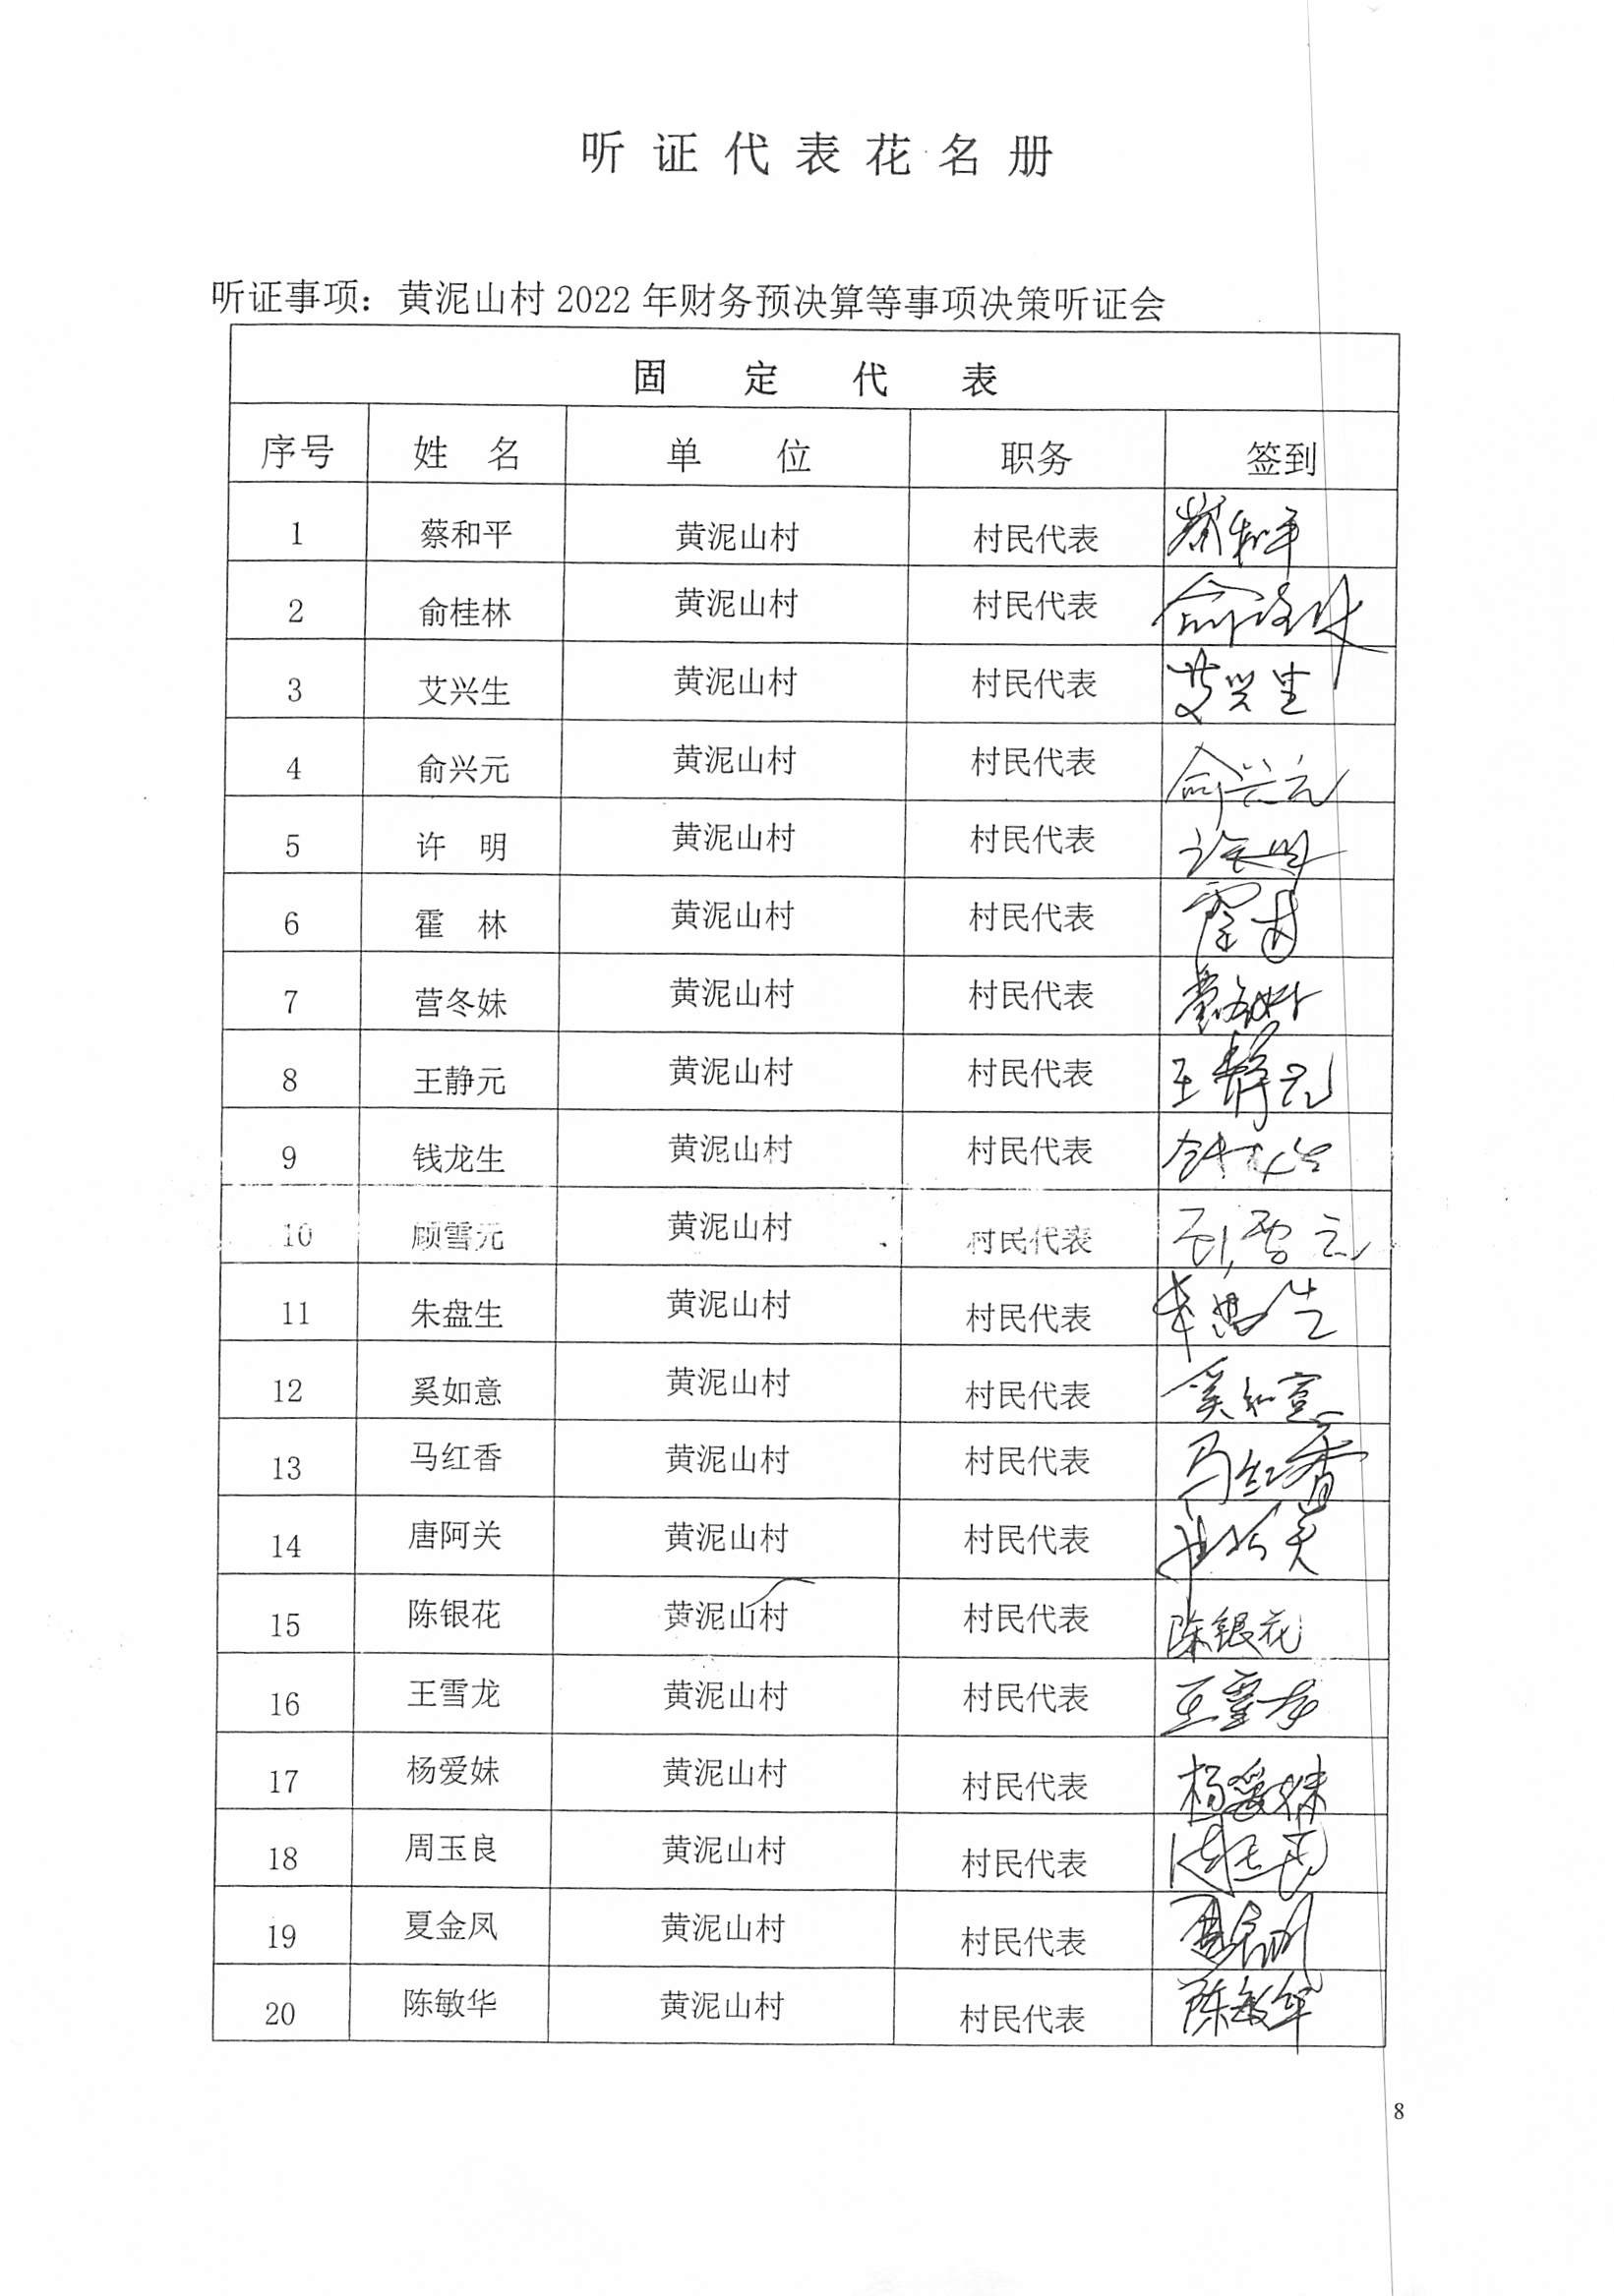 听证代表花名册
听证事项：黄泥山村 2022 年财务预决算等事项决策听证会
固 定 代 表
序号 姓 名 单 位 职务 签到
1 蔡和平 黄泥山村 村民代表 蔡和平
2 俞桂林 黄泥山村 村民代表 俞桂林
3 艾兴生 黄泥山村 村民代表 艾兴生
4 俞兴元 黄泥山村 村民代表 俞兴元
5 许 明 黄泥山村 村民代表 许明
6 霍 林 黄泥山村 村民代表 霍林
7 营冬妹 黄泥山村 村民代表 营冬妹
8 王静元 黄泥山村 村民代表 王静元
9 钱龙生 黄泥山村 村民代表 钱龙生
10 顾雪元 黄泥山村 村民代表 顾雪元
11 朱盘生 黄泥山村 村民代表 朱盘生
12 奚如意 黄泥山村 村民代表 奚如意
13 马红香 黄泥山村 村民代表 马红香
14 唐阿关 黄泥山村 村民代表 唐阿关
15 陈银花 黄泥山村 村民代表 陈银花
16 王雪龙 黄泥山村 村民代表 王雪龙
17 杨爱妹 黄泥山村 村民代表 杨爱妹
18 周玉良 黄泥山村 村民代表 周玉良
19 夏金凤 黄泥山村 村民代表 夏金凤
20 陈敏华 黄泥山村 村民代表 陈敏华
8